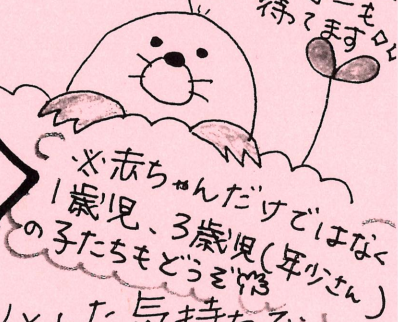 も
待ってます
※赤ちゃんだけではなく
1歳児、3歳児(年少さん)
の子たちもどうぞ
た気持ち